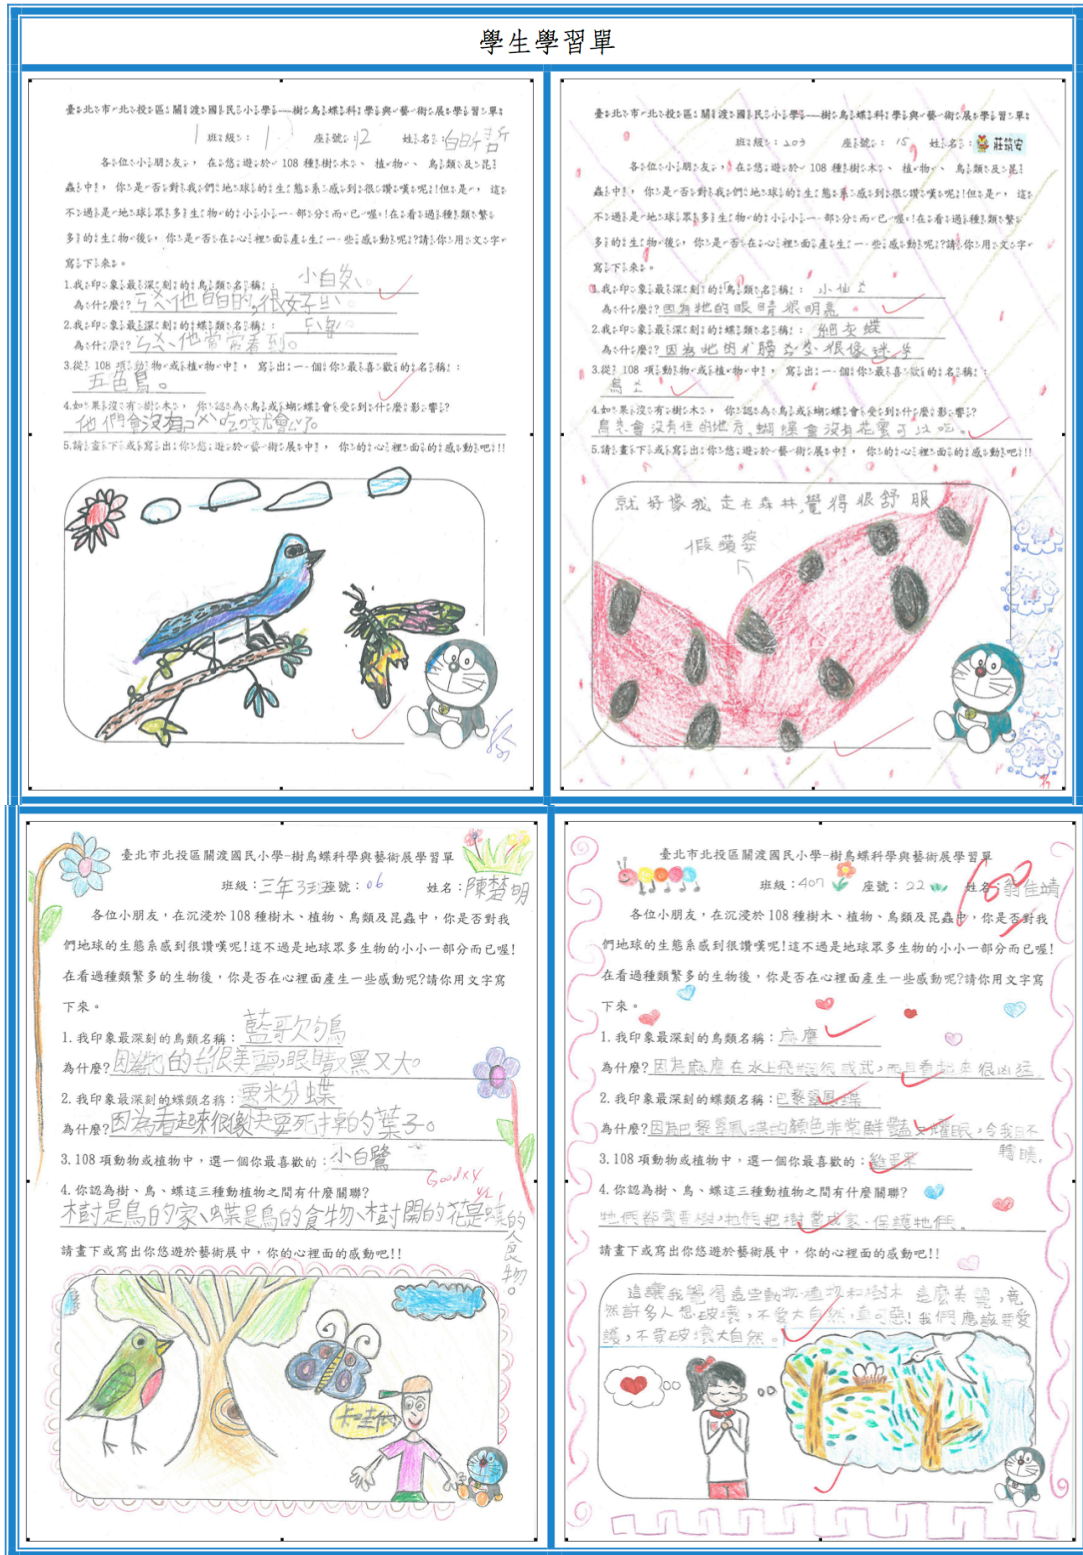 學生學習單
臺北市北投區關渡國民小學—樹鳥蝶科學與藝術展學習單
班級：1 座號：12 姓名：
各位小朋友，在悠遊於108種樹木、植物、鳥類及昆
蟲中，你是否對我們地球的生態系感到很讚嘆呢!但是，這
不過是地球眾多生物的小小一部分而已喔!在看過種類繁
多的生物後，你是否在心裡面產生一些感動呢?請你用文字
寫下來。
1.我印象最深刻的鳥類名稱：小白ㄌㄨˋ。
為什麼?ㄧㄣ ㄨㄟˋ他白白的很好
2.我印象最深刻的蝶類名稱：
為什麼?他常常看到。
3.從108項動物或植物中，寫出一個你最喜歡的名稱：
五色鳥。
4.如果沒有樹木，你認為鳥或蝴蝶會受到什麼影響?
他們會沒有
5.請畫下或寫出你悠遊於藝術展中，你的心裡面的感動吧!!
臺北市北投區關渡國民小學—樹鳥蝶科學與藝術展學習單
班級：203 座號：15 姓名：莊筑安
各位小朋友，在悠遊於108種樹木、植物、鳥類及昆
蟲中，你是否對我們地球的生態系感到很讚嘆呢!但是，這
不過是地球眾多生物的小小一部分而已喔!在看過種類繁
多的生物後，你是否在心裡面產生一些感動呢?請你用文字
寫下來。
1.我印象最深刻的鳥類名稱：小仙
為什麼?因為牠的眼睛很明亮
2.我印象最深刻的蝶類名稱：細灰蝶
為什麼?因為牠的很像迷宮
3.從108項動物或植物中，寫出一個你最喜歡的名稱：
鳥
4.如果沒有樹木，你認為鳥或蝴蝶會受到什麼影響?
鳥會沒有住的地方、蝴蝶會沒有花蜜可以吃。
5.請畫下或寫出你悠遊於藝術展中，你的心裡面的感動吧!!
就好像我走在森林，覺得很舒服
假蘋婆
臺北市北投區關渡國民小學-樹鳥蝶科學與藝術展學習單
班級：三年3班座號：06 姓名：陳楚明
各位小朋友，在沉浸於108種樹木、植物、鳥類及昆蟲中，你是否對我
們地球的生態系感到很讚嘆呢!這不過是地球眾多生物的小小一部分而已喔!
在看過種類繁多的生物後，你是否在心裡面產生一些感動呢?請你用文字寫
下來。
1.我印象最深刻的鳥類名稱：藍歌鴝鳥
為什麼?因為牠的毛很美麗，眼睛又黑又大。
2.我印象最深刻的蝶類名稱：栗米分蝶
為什麼?因為看起來很像快要死掉的葉子。
3.108項動物或植物中，選一個你最喜歡的：小白鷺
Good×4
4.你認為樹、鳥、蝶這三種動植物之間有什麼關聯?
樹是鳥的家、蝶是鳥的食物、樹開的花是蝶的食物。
請畫下或寫出你悠遊於藝術展中，你的心裡面的感動吧!!
臺北市北投區關渡國民小學-樹鳥蝶科學與藝術展學習單
100
班級：407 座號：22 姓名：翁佳靖
各位小朋友，在沉浸於108種樹木、植物、鳥類及昆蟲中，你是否對我
們地球的生態系感到很讚嘆呢!這不過是地球眾多生物的小小一部分而已喔!
在看過種類繁多的生物後，你是否在心裡面產生一些感動呢?請你用文字寫
下來。
1.我印象最深刻的鳥類名稱：麻鷹
為什麼?因為麻鷹在水上飛起很威武，而且看起來很凶猛
2.我印象最深刻的蝶類名稱：巴黎翠鳳蝶
為什麼?因為巴黎翠鳳蝶的顏色非常鮮豔又耀眼，令我目不轉睛。
3.108項動物或植物中，選一個你最喜歡的：
4.你認為樹、鳥、蝶這三種動植物之間有什麼關聯?
牠們都需要樹，牠們把樹當成家，保護牠們。
請畫下或寫出你悠遊於藝術展中，你的心裡面的感動吧!!
這讓我覺得這些動物、植物和樹木這麼美麗，竟
然許多人想破壞，不愛大自然，真可惡!我們應該要愛
護，不要破壞大自然。